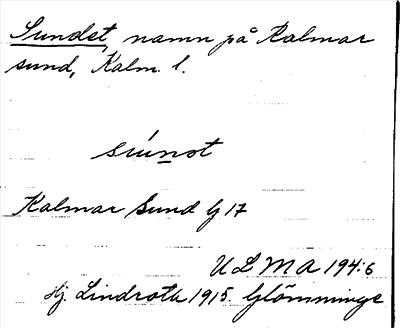 Sundet, namn på Kalmar
sund, Kalm. l.
súnot
Kalmar Sund lj 17
ULMA 194:6
Hj. Lindroth 1915. Glömminge